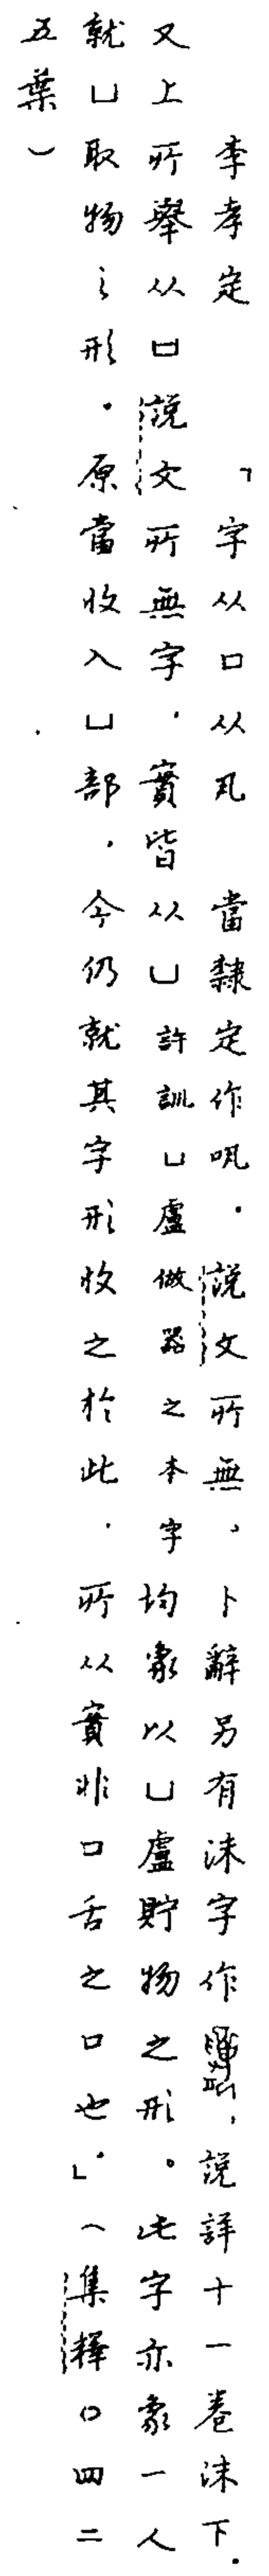 李孝定「字从口从丮當隸定作𠯌。說文所無，卜辭另有沬字作，說詳十一卷沬下.
又上所舉从口說文所無字，實皆从凵許訓凵盧做器之本字均象以凵盧貯物之形。此字亦象一人
就凵取物之形。原當收入凵部，今仍就其字形收之於此，所从實非口舌之口也。」（集釋〇四二
五葉）